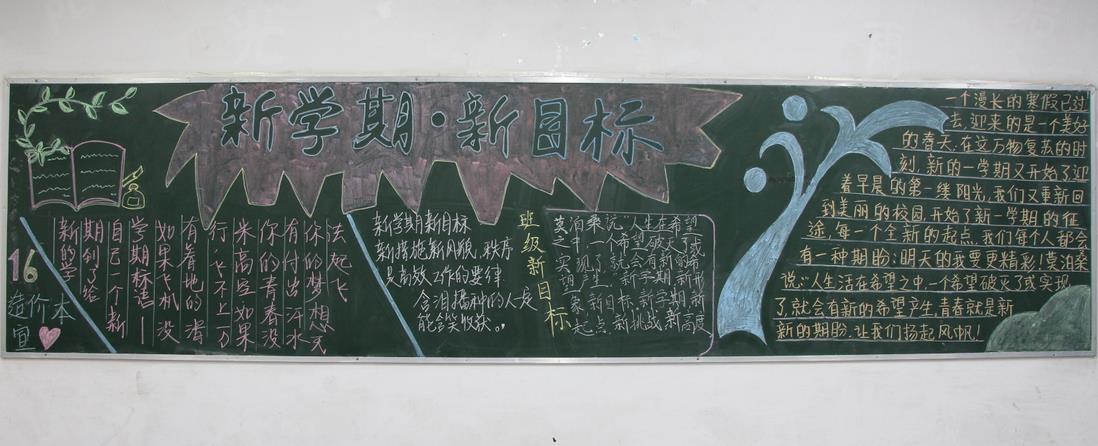 新学期·新目标
16
造价本
宣
新的学
期到了给
自己一个新
学期标语:——
如果飞机没
有着地的滑
行,飞不上一万
米高空,如果
你的青春没
有付出汗水
你的梦想无
法起飞
新学期新目标
新措施新风貌,秩序
是高效工作的要律
含泪播种的人一定
能含笑收获。
班级新目标
莫泊桑说:“人生在希望
之中,一个希望破灭了或
一个漫长的寒假已过
去,迎来的是一个美好
的春天,在这万物复苏的时
刻,新的一学期又开始了,迎
着早晨的第一缕阳光,我们又重新回
到美丽的校园,开始了新一学期的征
途,每一个全新的起点,我们每个人都会
有一种期盼:明天的我要更精彩!莫泊桑
说:“人生活在希望之中,一个希望破灭了或实现
了,就会有新的希望产生,青春就是新
新的期盼,让我们扬起风帆!